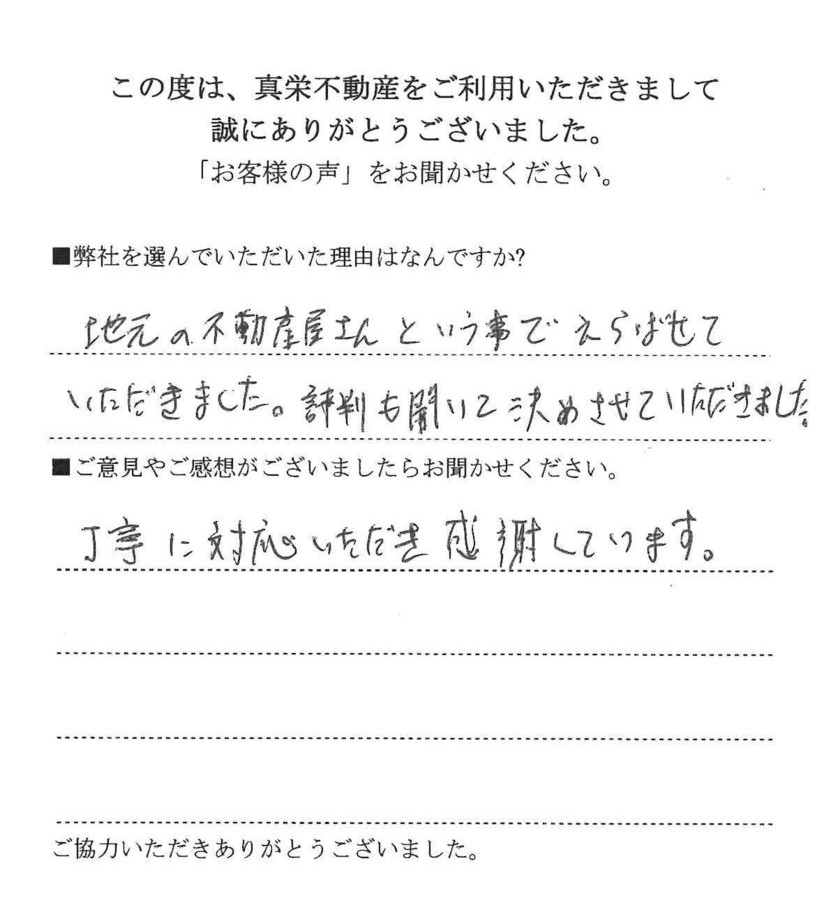 この度は、真栄不動産をご利用いただきまして
誠にありがとうございました。
「お客様の声」をお聞かせください。
■弊社を選んでいただいた理由はなんですか?
地元の不動産屋さんという事でえらばせて
いただきました。評判も聞いて決めさせていただきました。
■ご意見やご感想がございましたらお聞かせください。
丁寧に対応いただき感謝しています。
ご協力いただきありがとうございました。